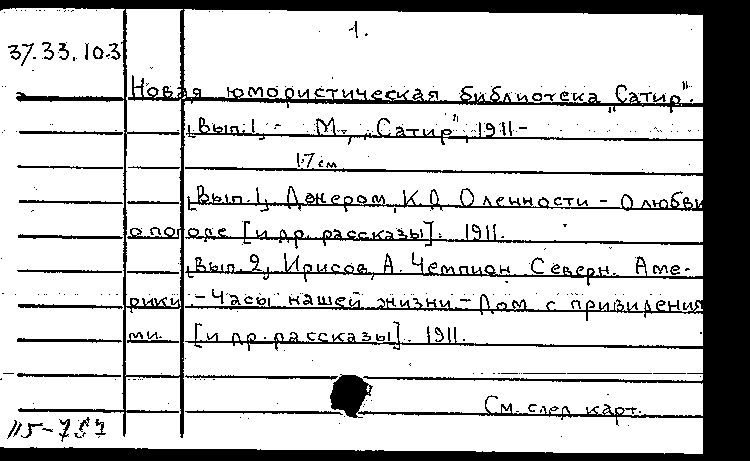 1.
37.33.103
Новая юмористическая библиотека „Сатир".
[Вып.1] - М., „Сатир", 1911-
17 см
[Вып.1]. Джером, К.Д. О ленности - О любви
о погоде [и др. рассказы]. 1911.
[Вып. 2]. Ирисов, А. Чемпион Северн. Аме-
рики - Часы нашей жизни - Дом с привидения
ми [и др. рассказы]. 1911.
См. след карт.
115-757